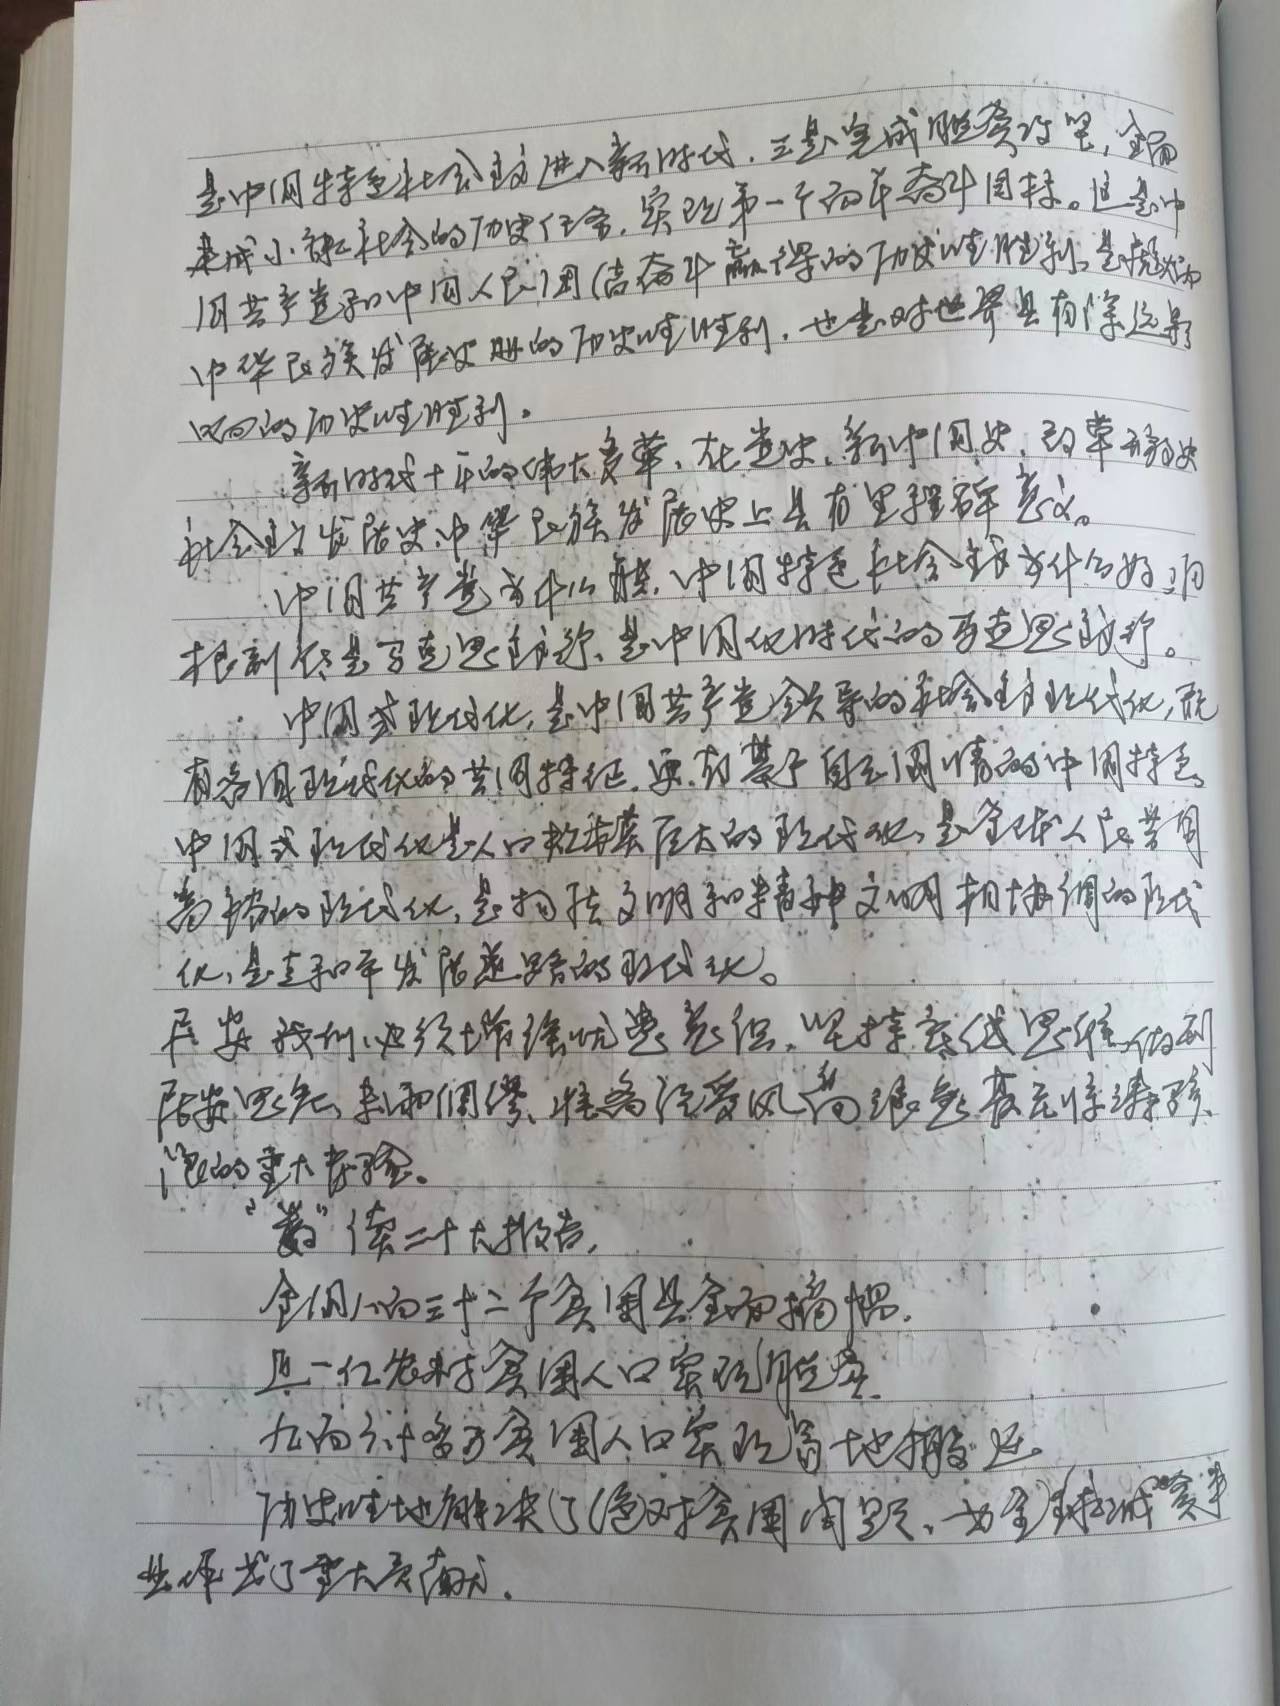 是中国特色社会主义进入新时代，三是完成脱贫攻坚，全面
建成小康社会的历史任务，实现第一个百年奋斗目标。这是中
国共产党和中国人民团结奋斗赢得的历史性胜利，是彪炳
中华民族发展史册的历史性胜利，也是对世界具有深远影
响的历史性胜利。
新时代十年的伟大变革，在党史、新中国史、改革开放史
社会主义发展史、中华民族发展史上具有里程碑意义。
中国共产党为什么能，中国特色社会主义为什么好，归
根到底是马克思主义行，是中国化时代的马克思主义行。
中国式现代化，是中国共产党领导的社会主义现代化，既
有各国现代化的共同特征，更有基于自己国情的中国特色
中国式现代化是人口规模巨大的现代化，是全体人民共同
富裕的现代化，是物质文明和精神文明相协调的现代
化，是走和平发展道路的现代化。
居安我们必须增强忧患意识，坚持底线思维，做到
居安思危、未雨绸缪，准备经受风高浪急甚至惊涛骇
浪的重大考验。
“数”读二十大报告，
全国八百三十二个贫困县全面摘帽，
近一亿农村贫困人口实现脱贫，
九百六十多万贫困人口实现易地搬迁，
历史性地解决了绝对贫困问题，为全球减贫事
业作出了重大贡献。